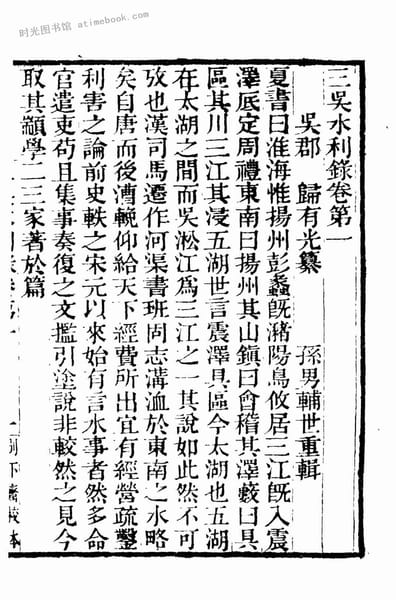 时光图书馆 atimebook.com
三吳水利錄卷第一
吳郡 歸有光纂 孫男輔世重輯
夏書曰淮海惟揚州彭蠡旣瀦陽鳥攸居三江旣入震
澤厎定周禮東南曰揚州其山鎮曰會稽其澤藪曰具
區其川三江其浸五湖世言震澤具區今太湖也五湖
在太湖之間而吳淞江爲三江之一其說如此然不可
攷也漢司馬遷作河渠書班固志溝洫於東南之水略
矣自唐而後漕輓仰給天下經費所出宜有經營疏鑿
利害之論前史軼之宋元以來始有言水事者然多命
官遣吏苟且集事奏復之文攟引塗說非較然之見今
取其顓學二三家著於篇